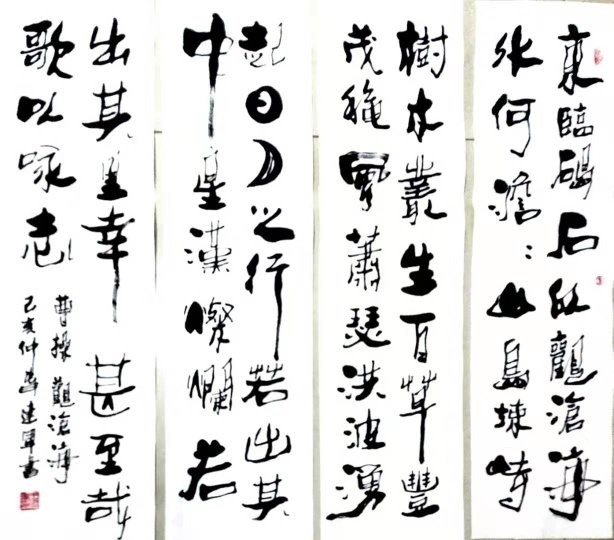 東臨碣石以觀滄海
水何澹:山島竦峙
樹木叢生百草豐
茂穐風蕭瑟洪波湧
起日月之行若出其
中星漢燦爛若
出其里幸甚至哉
歌以咏志
曹操觀滄海
己亥仲春建軍書